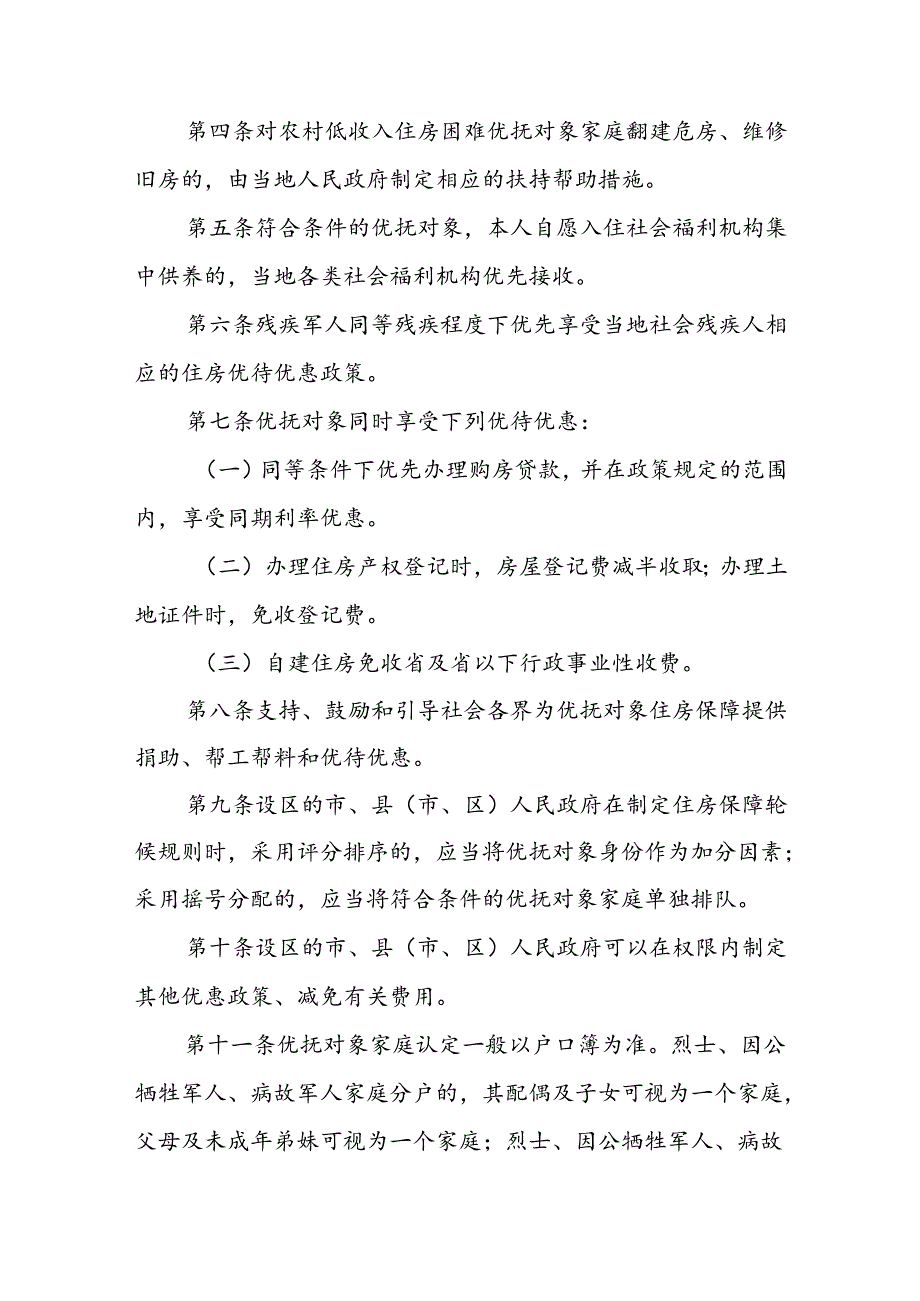 第四条对农村低收入住房困难优抚对象家庭翻建危房、维修
旧房的，由当地人民政府制定相应的扶持帮助措施。
第五条符合条件的优抚对象，本人自愿入住社会福利机构集
中供养的，当地各类社会福利机构优先接收。
第六条残疾军人同等残疾程度下优先享受当地社会残疾人相
应的住房优待优惠政策。
第七条优抚对象同时享受下列优待优惠：
（一）同等条件下优先办理购房贷款，并在政策规定的范围
内，享受同期利率优惠。
（二）办理住房产权登记时，房屋登记费减半收取；办理土
地证件时，免收登记费。
（三）自建住房免收省及省以下行政事业性收费。
第八条支持、鼓励和引导社会各界为优抚对象住房保障提供
捐助、帮工帮料和优待优惠。
第九条设区的市、县（市、区）人民政府在制定住房保障轮
候规则时，采用评分排序的，应当将优抚对象身份作为加分因素；
采用摇号分配的，应当将符合条件的优抚对象家庭单独排队。
第十条设区的市、县（市、区）人民政府可以在权限内制定
其他优惠政策、减免有关费用。
第十一条优抚对象家庭认定一般以户口簿为准。烈士、因公
牺牲军人、病故军人家庭分户的，其配偶及子女可视为一个家庭，
父母及未成年弟妹可视为一个家庭；烈士、因公牺牲军人、病故